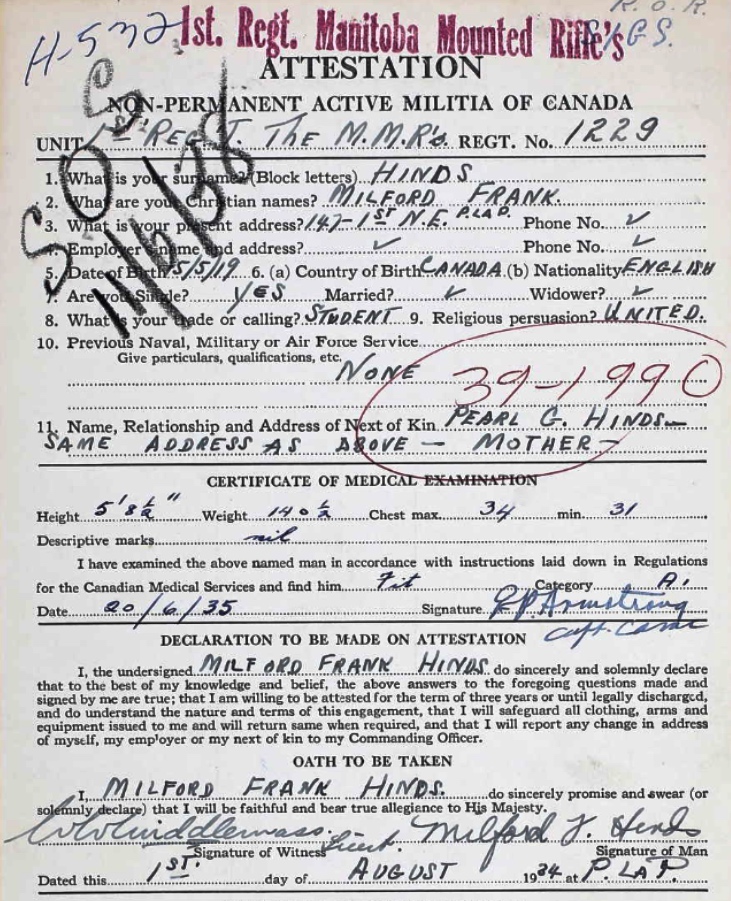 H-532
1st. Regt. Manitoba Mounted Rifle's
R.O.R.
SIGS.
ATTESTATION
NON-PERMANENT ACTIVE MILITIA OF CANADA
UNIT 1st REGT. THE M.M.R's. REGT. No. 1229
S.O.S
11/6/38
1. What is your surname? (Block letters) HINDS
2. What are your Christian names? MILFORD FRANK.
3. What is your present address? 147-1ST N.E. P.LA P. Phone No. ✓
4. Employer's name and address? ✓ Phone No. ✓
5. Date of Birth 5/5/19 6. (a) Country of Birth CANADA (b) Nationality ENGLISH
7. Are you Single? YES Married? ✓ Widower? ✓
8. What is your trade or calling? STUDENT 9. Religious persuasion? UNITED.
10. Previous Naval, Military or Air Force Service
Give particulars, qualifications, etc.
NONE
39-1990
11. Name, Relationship and Address of Next of Kin PEARL G. HINDS—
SAME ADDRESS AS ABOVE — MOTHER —
CERTIFICATE OF MEDICAL EXAMINATION
Height 5'8½" Weight 140½ Chest max. 34 min. 31
Descriptive marks nil
I have examined the above named man in accordance with instructions laid down in Regulations
for the Canadian Medical Services and find him Fit Category A1
Date 20/6/35 Signature Armstrong
Capt. CAMC
DECLARATION TO BE MADE ON ATTESTATION
I, the undersigned MILFORD FRANK HINDS do sincerely and solemnly declare
that to the best of my knowledge and belief, the above answers to the foregoing questions made and
signed by me are true; that I am willing to be attested for the term of three years or until legally discharged,
and do understand the nature and terms of this engagement, that I will safeguard all clothing, arms and
equipment issued to me and will return same when required, and that I will report any change in address
of myself, my employer or my next of kin to my Commanding Officer.
OATH TO BE TAKEN
I, MILFORD FRANK HINDS. do sincerely promise and swear (or
solemnly declare) that I will be faithful and bear true allegiance to His Majesty.
Lieut. Milford F. Hinds
Signature of Witness Signature of Man
Dated this 1ST. day of AUGUST 1934 at P. LA P.